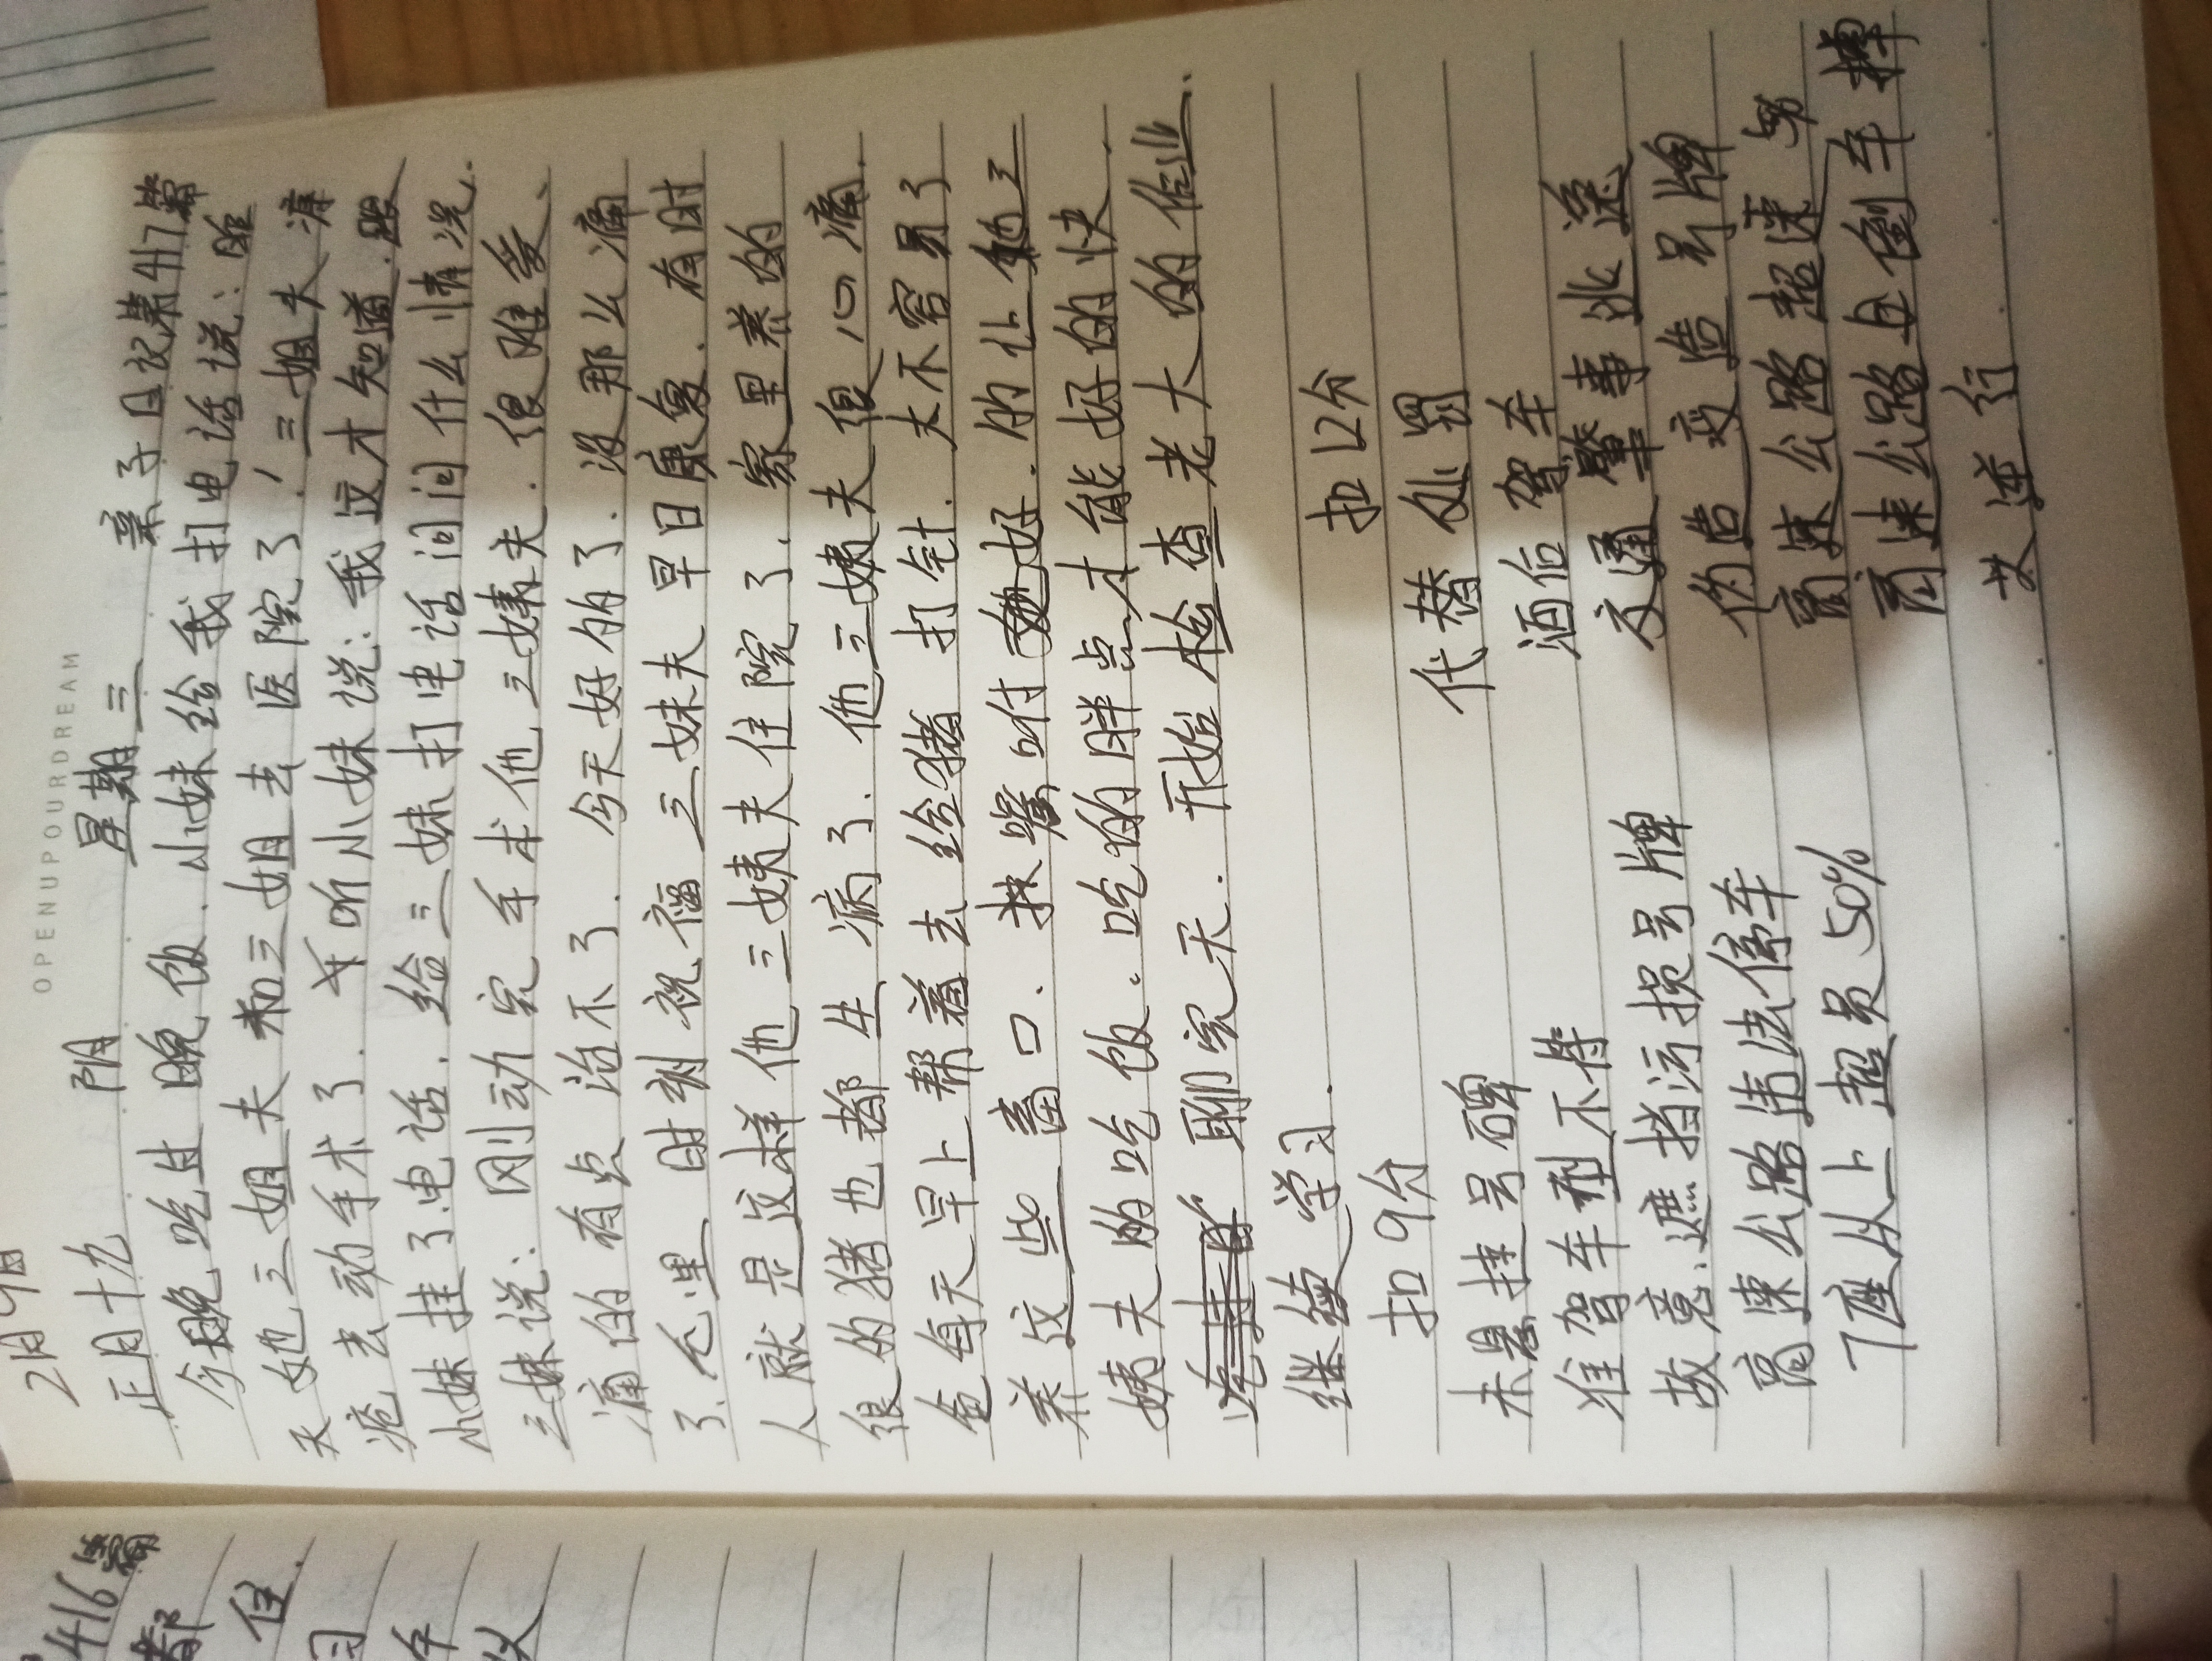 OPENUPOURDREAM
2月9日
正月十九 阴 星期二 亲子日记第417篇
今晚吃过晚饭.小妹给我打电话说:昨
天她三姐夫和三姐去医院了!三姐夫痔
疮去动手术了.听小妹说:我这才知道.跟
小妹挂了电话.给三妹打电话问问什么情况.
三妹说:刚动完手术他三姨夫.很难受、
痛的有点治不了.今天好的了.没那么痛
了.心里时刻祝福三妹夫早日康复.有时
人就是这样他三姨夫住院了.家里养的
很的猪也都生病了.他三姨夫很心痛.
爸每天早上帮着去给猪打针.太不容易了
养这些畜口.抉嘴吩好.的让他三
姨夫的吃饭。吃的胖点,才能好的快.
聊家天.开始检查老大的作业.
继续学习.
扣9分 扣12分
未悬挂号碑 代替处罚
准驾车型不符 酒后驾车
故意.遮挡污损号牌 交通肇事逃逸
高速公路违法停车 伪造变造号牌
7座以上超员50% 高速公路超速
高速公路上倒车掉
逆行
416篇
都
住.
习
午